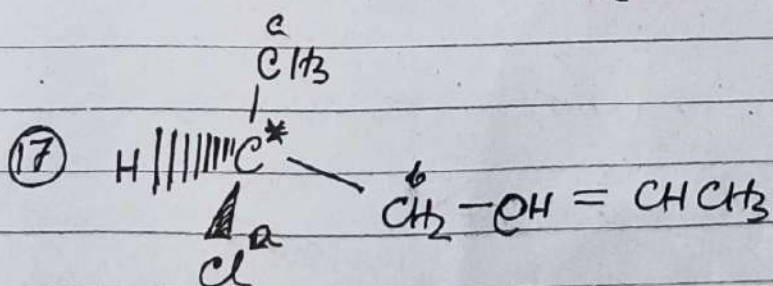 c
CH3
⑰ H C*
b
CH2 - CH = CHCH3
a
Cl